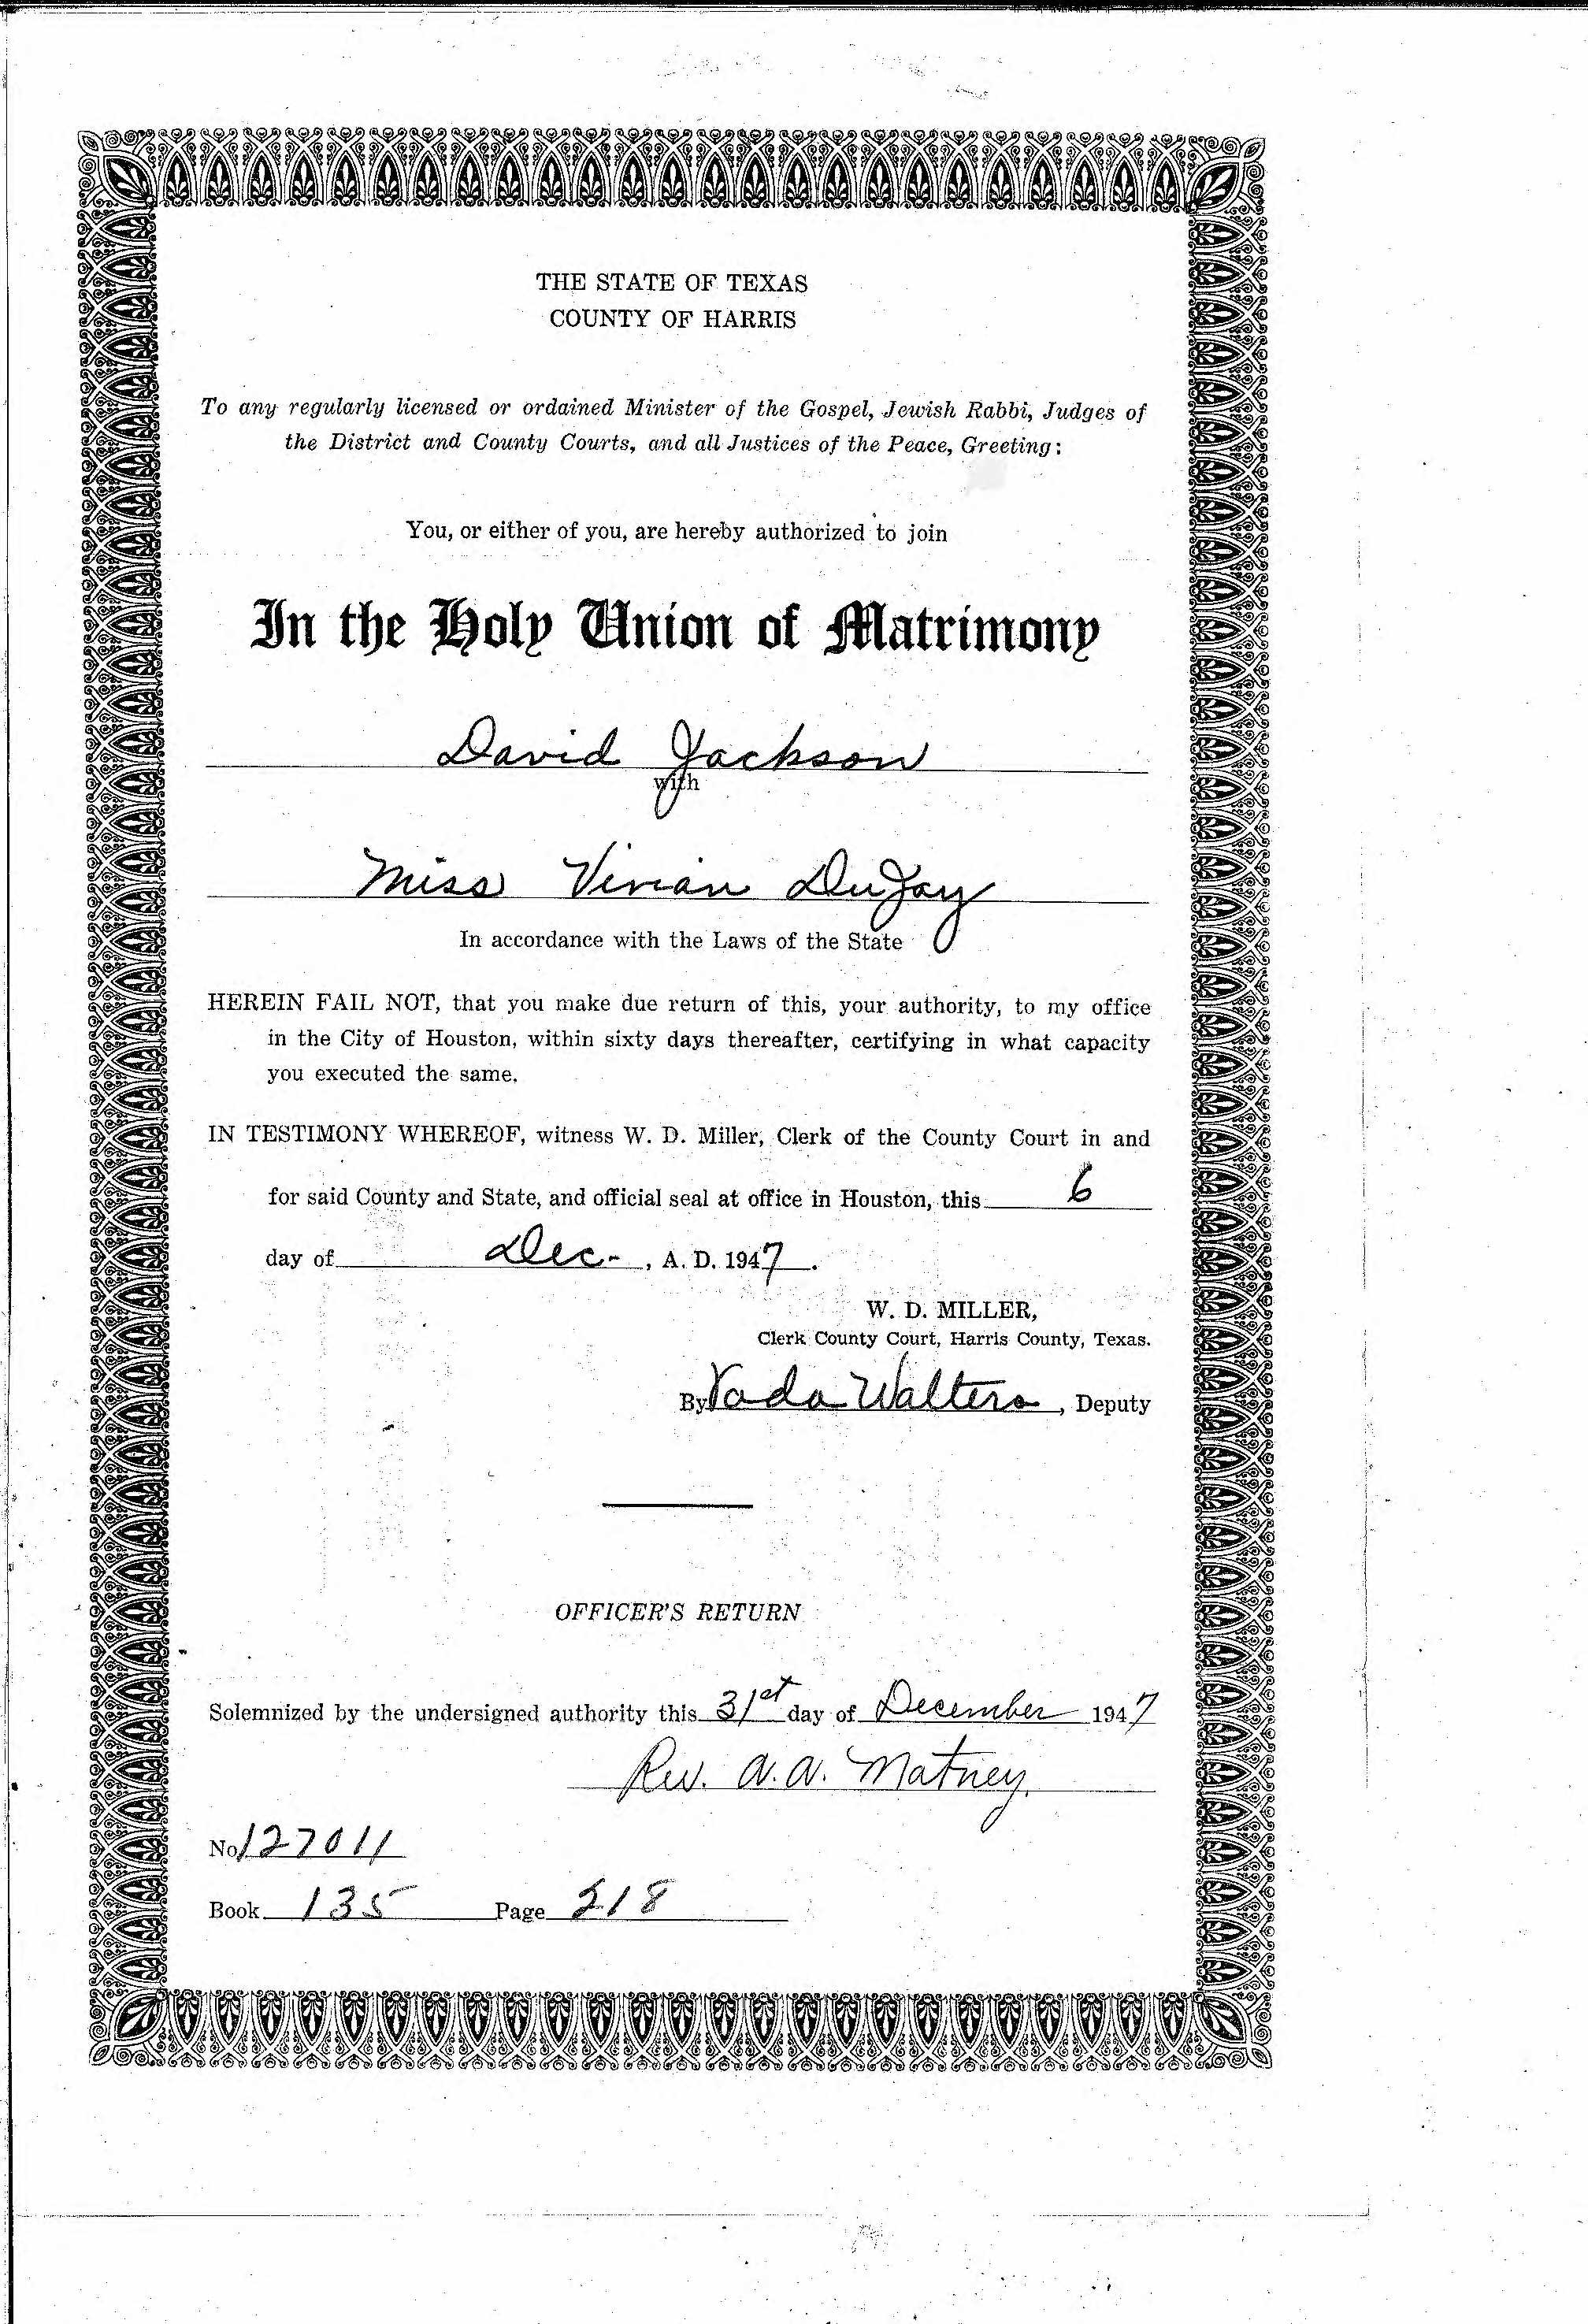 THE STATE OF TEXAS
COUNTY OF HARRIS
To any regularly licensed or ordained Minister of the Gospel, Jewish Rabbi, Judges of
the District and County Courts, and all Justices of the Peace, Greeting:
You, or either of you, are hereby authorized to join
In the Holy Union of Matrimony
David Jackson
with
Miss Vivian DuJay
In accordance with the Laws of the State
HEREIN FAIL NOT, that you make due return of this, your authority, to my office
in the City of Houston, within sixty days thereafter, certifying in what capacity
you executed the same.
IN TESTIMONY WHEREOF, witness W. D. Miller, Clerk of the County Court in and
for said County and State, and official seal at office in Houston, this 6
day of Dec-, A. D. 1947.
W. D. MILLER,
Clerk County Court, Harris County, Texas.
By Vada Walters, Deputy
OFFICER'S RETURN
Solemnized by the undersigned authority this 31st day of December 1947
Rev. A. A. Matney.
No 127011
Book 135 Page 218